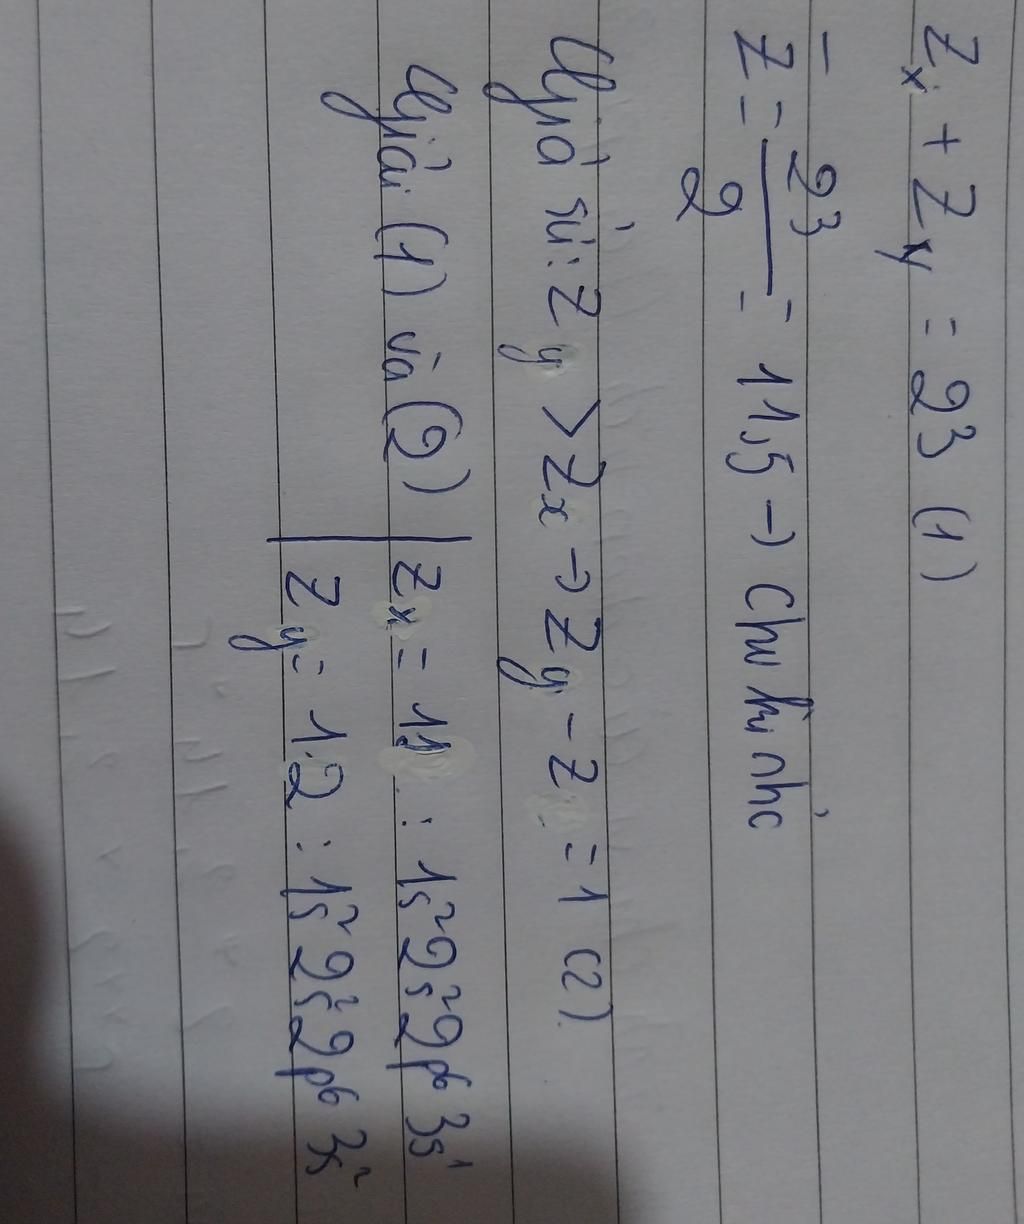 Zx + Zy = 23 (1)
Z̄ = 23/2 = 11,5 → Chu kì nhỏ
Giả sử: Zy > Zx → Zy - Z = 1 (2)
Giải (1) và (2) | Zx = 11 : 1s² 2s² 2p⁶ 3s¹
Zy = 12 : 1s² 2s² 2p⁶ 3s²